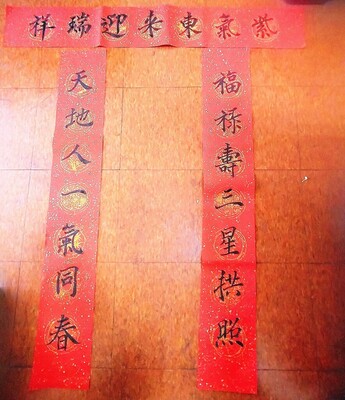 紫氣東来迎瑞祥
福禄壽三星拱照
天地人一氣同春